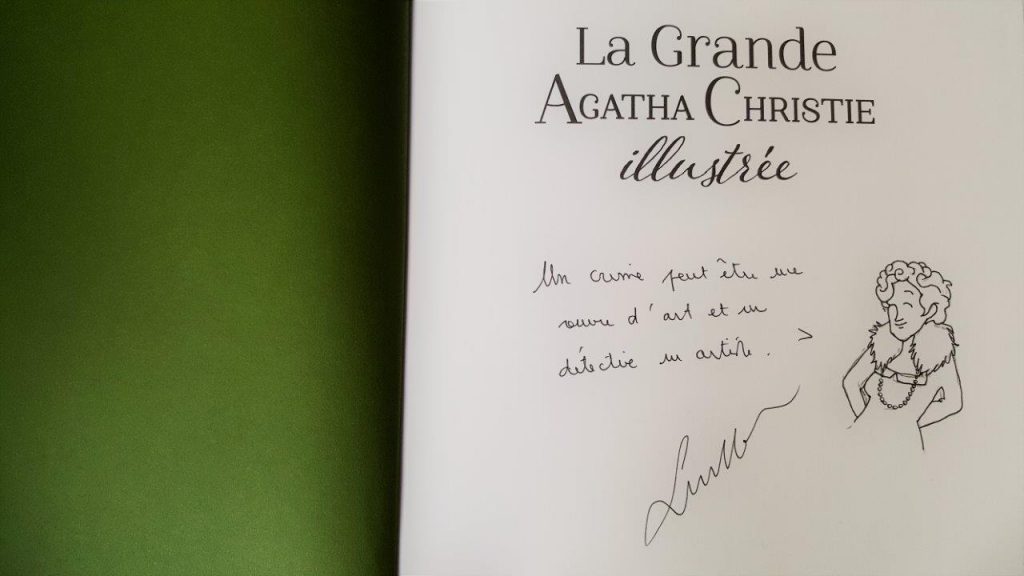 La Grande
AGATHA CHRISTIE
illustrée
Un crime peut être une
œuvre d'art et un
détective un artiste. >